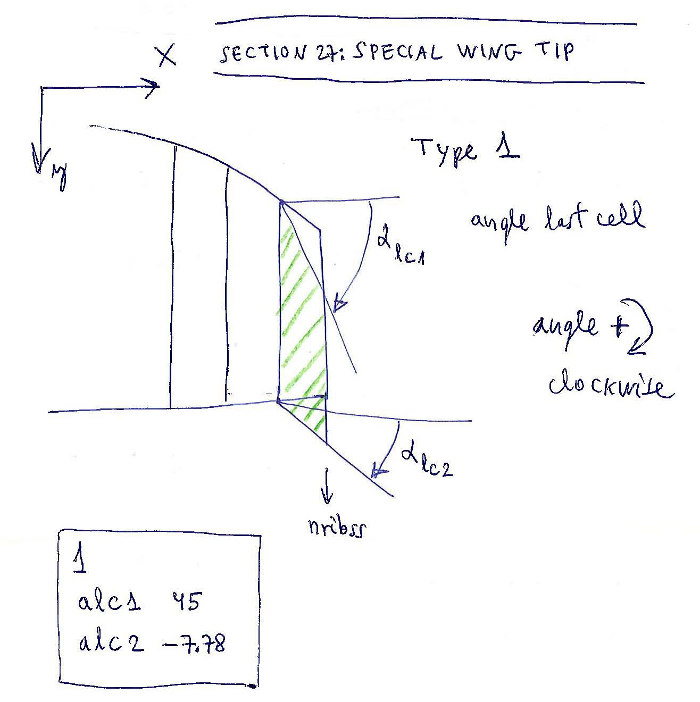 SECTION 27: SPECIAL WING TIP
X
y
Type 1
αlc1
angle last cell
angle +
clockwise
αlc2
nribss
1
alc1 45
alc2 -7.78